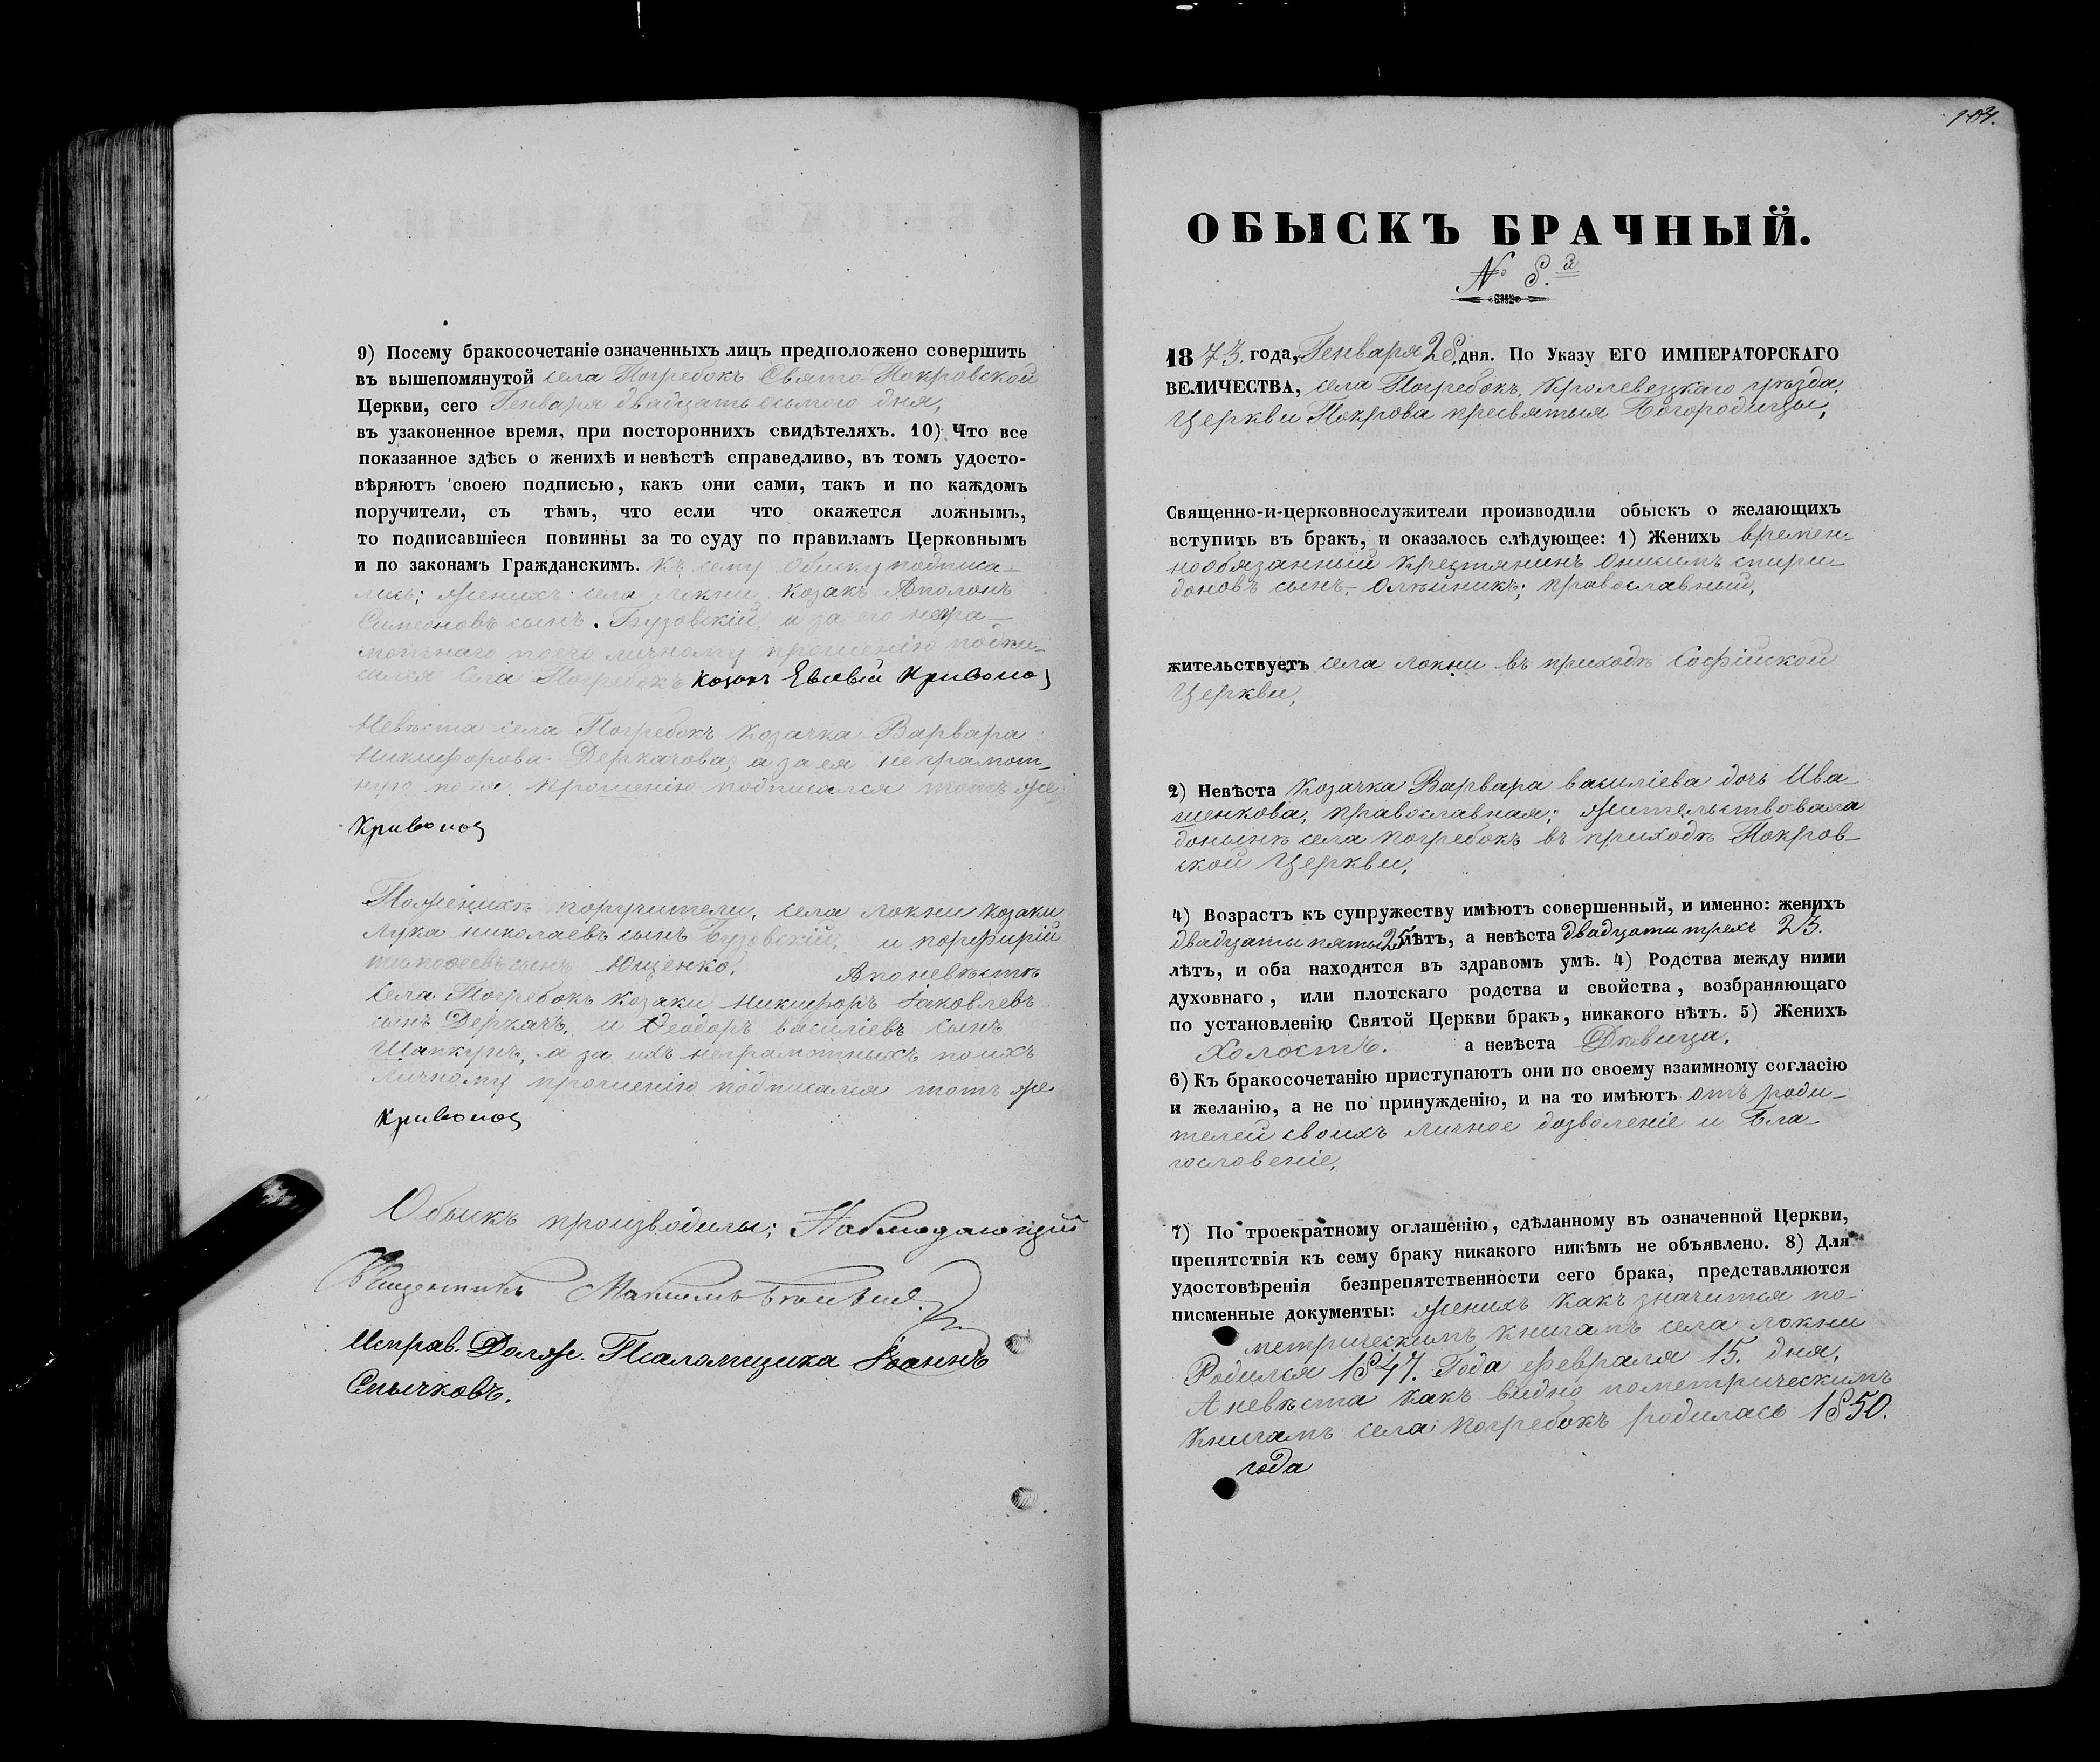 9) Посему бракосочетаніе означенныхъ лицъ предположено совершить
въ вышепомянутой села Погребокъ Свято-Покровской
Церкви, сего Генваря двадцать осьмого дня,
въ узаконенное время, при постороннихъ свидѣтеляхъ. 10) Что все
показанное здѣсь о женихѣ и невѣстѣ справедливо, въ томъ удосто-
вѣряютъ своею подписью, какъ они сами, такъ и по каждомъ
поручители, съ тѣмъ, что если что окажется ложнымъ,
то подписавшіеся повинны за то суду по правиламъ Церковнымъ
и по законамъ Гражданскимъ. Къ сему обыску подписа-
лись; женихъ села Локни козакъ Аполонъ
Симеоновъ сынъ Бузовскій, а за его негра-
мотнаго по его личному прошенію подпи-
сался села Погребокъ козакъ Евсевій Кривонос
Невѣста села Погребокъ козачка Варвара
Никифорова Деркачова, а за ея неграмот-
ную по ея прошенію подписался тотъ же
Кривонос
По женихѣ поручители, села Локни козаки
Лука Николаевъ сынъ Бузовскій, и Порфирій
Тимофеевъ сынъ Ющенко, А по невѣстѣ
села Погребокъ козаки Никифоръ Іаковлевъ
сынъ Деркачъ, и Ѳеодоръ Василіевъ сынъ
Шапкунъ, а за ихъ неграмотныхъ по ихъ
личному прошенію подписался тотъ же
Кривонос
Обыскъ производилы; Наблюдающій
Священникъ Максимъ
Исправ. Долж. Псаломщика Іоаннъ
Смычковъ.
184.
ОБЫСКЪ БРАЧНЫЙ.
№ 8.й
1873. года, Генваря 28. дня. По Указу ЕГО ИМПЕРАТОРСКАГО
ВЕЛИЧЕСТВА, села Погребокъ, Кролевецкаго уѣзда,
Церкви Покрова пресвятыя Богородицы,
Священно-и-церковнослужители производили обыскъ о желающихъ
вступить въ бракъ, и оказалось слѣдующее: 1) Женихъ времен-
нообязанный крестянинъ Онисимъ Спири-
доновъ сынъ, Олѣйникъ; православный,
жительствуетъ села Локни въ приходѣ Софійской
Церкви,
2) Невѣста козачка Варвара Василіева дочь Ива-
шенкова, православная; жительствовала
донынѣ села Погребокъ въ приходѣ Покров-
ской Церкви,
4) Возрастъ къ супружеству имѣютъ совершенный, и именно: женихъ
двадцати пяти 25 лѣтъ, а невѣста двадцати трехъ 23.
лѣтъ, и оба находятся въ здравомъ умѣ. 4) Родства между ними
духовнаго, или плотскаго родства и свойства, возбраняющаго
по установленію Святой Церкви бракъ, никакого нѣтъ. 5) Женихъ
Холостъ. а невѣста Дѣвица.
6) Къ бракосочетанію приступаютъ они по своему взаимному согласію
и желанію, а не по принужденію, и на то имѣютъ отъ роди-
телей своихъ личное дозволеніе и Бла-
гословеніе,
7) По троекратному оглашенію, сдѣланному въ означенной Церкви,
препятствія къ сему браку никакого никѣмъ не объявлено. 8) Для
удостовѣренія безпрепятственности сего брака, представляются
писменные документы: женихъ какъ значится по
метрическимъ книгамъ села Локни
Родился 1847. Года Февраля 15. дня,
А невѣста какъ видно пометрическимъ
Книгамъ села Погребокъ родилась 1850.
года